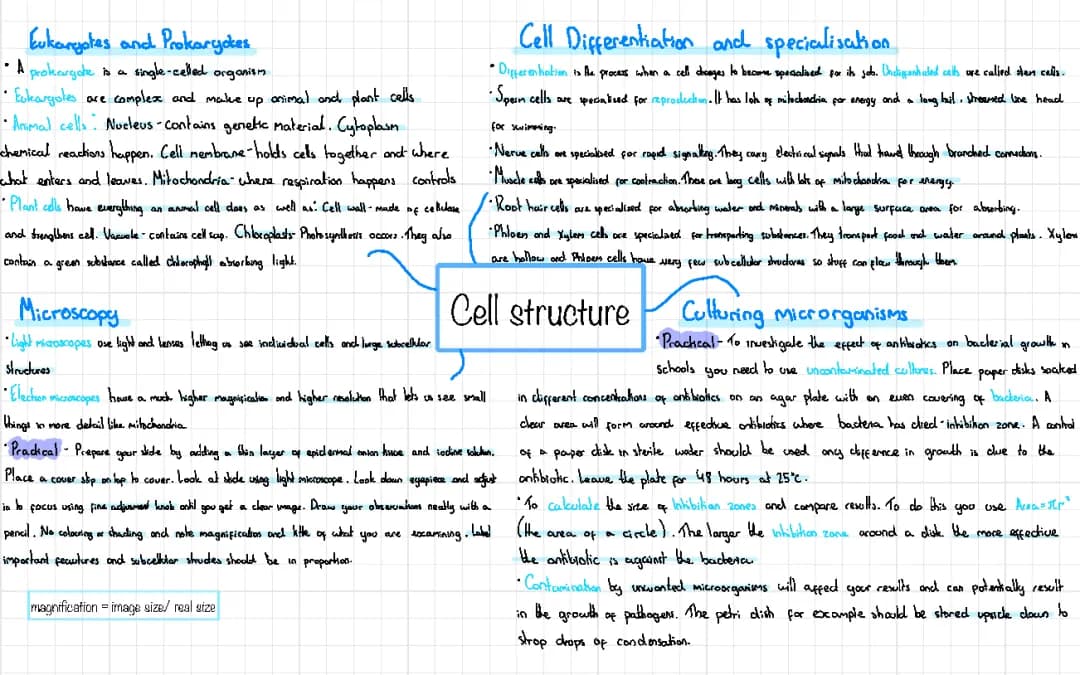 Eukaryotes and Prokaryotes
• A prokaryote is a single-celled organism
• Eukaryotes are complex and make up animal and plant cells
• Animal cells: Nucleus - contains genetic material. Cytoplasm
chemical reactions happen. Cell membrane - holds cells together and where
what enters and leaves. Mitochondria - where respiration happens controls
• Plant cells have everything an animal cell does as well as: Cell wall - made of cellulose
and strengthens cell. Vacuole - contains cell sap. Chloroplasts - Photosynthesis occurs. They also
contain a green substance called Chlorophyll absorbing light.
Cell Differentiation and specialisation
• Differentiation is the process when a cell changes to become specialised for its job. Undifferentiated cells are called stem cells.
• Sperm cells are specialised for reproduction. It has lots of mitochondria for energy and a long tail, streamed line head
for swimming.
• Nerve cells are specialised for rapid signalling. They carry electrical signals that travel through branched connections.
• Muscle cells are specialised for contraction. These are long cells with lots of mitochondria for energy.
• Root hair cells are specialised for absorbing water and minerals with a large surface area for absorbing.
• Phloem and Xylem cells are specialised for transporting substances. They transport food and water around plants. Xylem
are hollow and Phloem cells have very few subcellular structures so stuff can flow through them
Cell structure
Microscopy
• Light microscopes use light and lenses letting us see individual cells and large subcellular
structures
• Electron microscopes have a much higher magnification and higher resolution that lets us see small
things in more detail like mitochondria
• Practical - Prepare your slide by adding a thin layer of epidermal onion tissue and iodine solution.
Place a cover slip on top to cover. Look at slide using light microscope. Look down eyepiece and adjust
in to focus using fine adjustment knob until you get a clear image. Draw your observations neatly with a
pencil. No colouring or shading and note magnification and title of what you are examining. Label
important features and subcellular should be in proportion.
magnification = image size/ real size
Culturing microrganisms
• Practical - To investigate the effect of antibiotics on bacterial growth in
schools you need to use uncontaminated cultures. Place paper disks soaked
in different concentrations of antibiotics on an agar plate with an even covering of bacteria. A
clear area will form around effective antibiotics where bacteria has died - inhibition zone. A control
of a paper disk in sterile water should be used any difference in growth is due to the
antibiotic. Leave the plate for 48 hours at 25°c.
• To calculate the size of inhibition zones and compare results. To do this you use Area = πr²
(the area of a circle). The larger the inhibition zone around a disk the more effective
the antibiotic is against the bacteria
• Contamination by unwanted microorganisms will affect your results and can potentially result
in the growth of pathogens. The petri dish for example should be stored upside down to
stop drops of condensation.